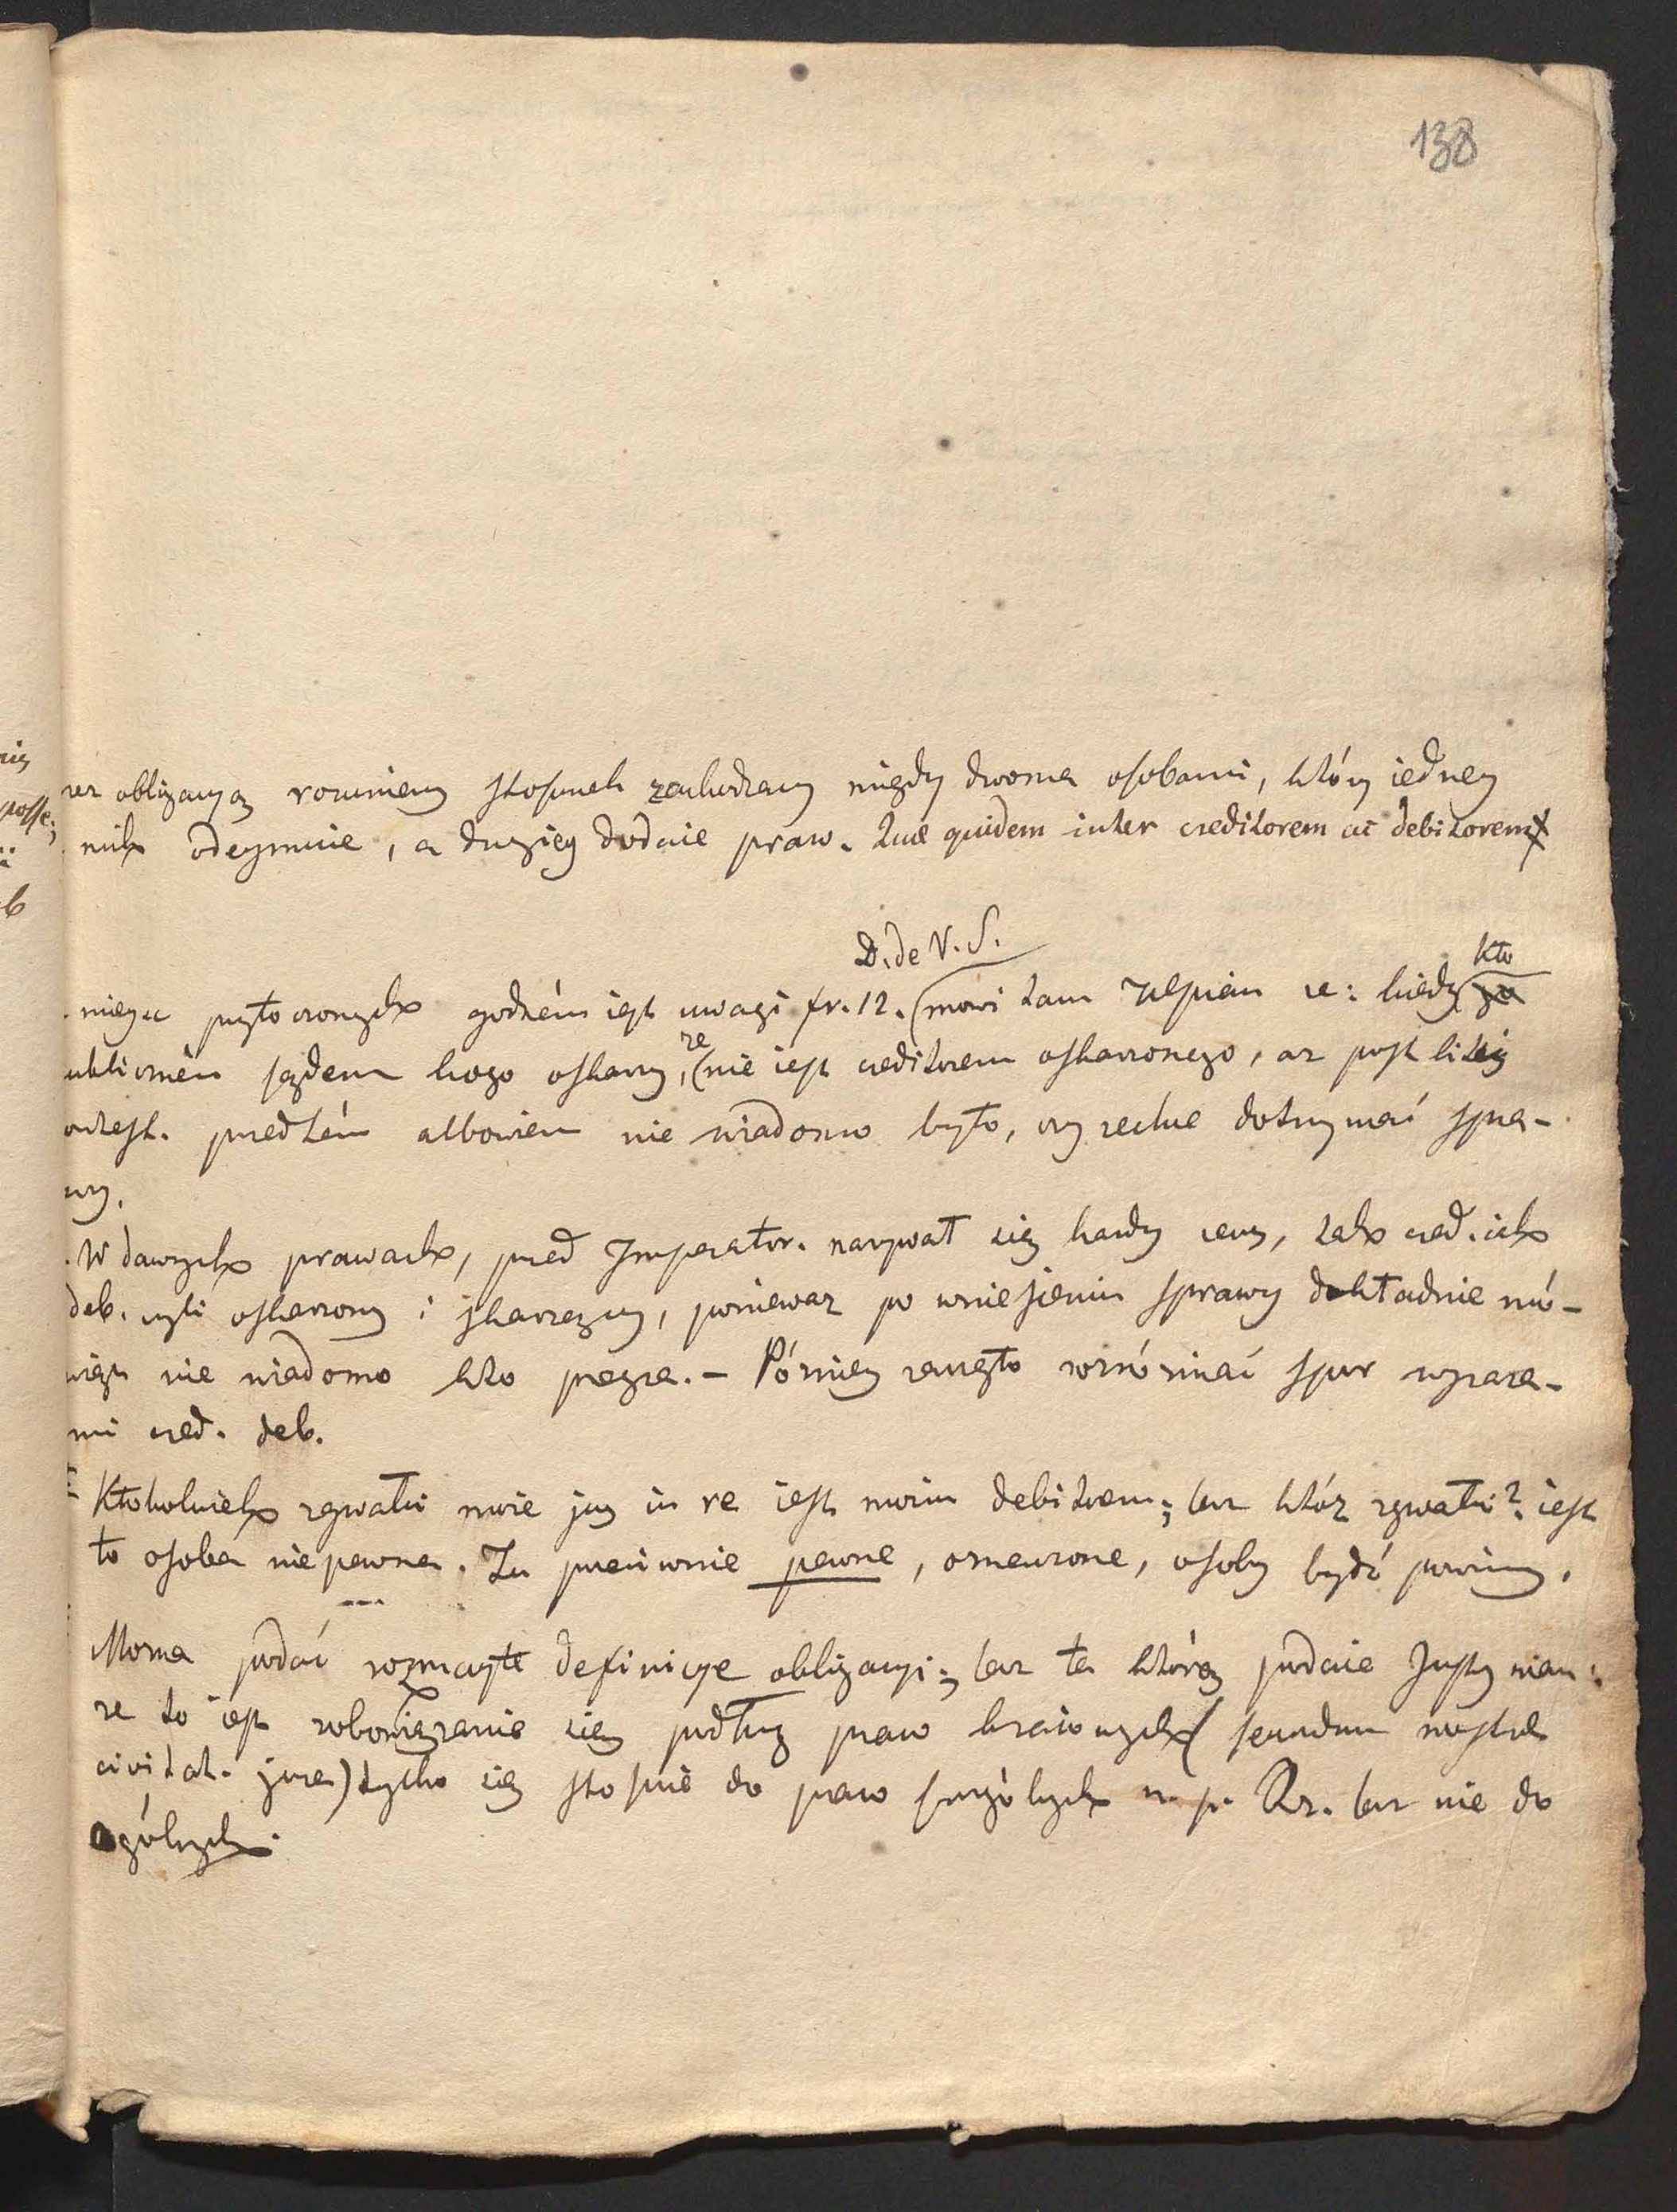 138
obligacyą rozumiemy stosunek zachodzący między dwoma osobami, który iedney
nich odeymuie, a drugiey dodaie praw. Quae quidem inter creditorem ac debitorem
D. de V. S.
kto
niego przytoczonych godném iest uwagi fr. 12. (mowi tam Ulpian że: kiedy
że
ubliczném sądem kogo oskarży, (nie iest creditorem oskarżonego, aż post litis
ontest. przedtém albowiem nie wiadomo było, czy zechce dotrzymać spra-
wy.
W dawnych prawach, przed Imperator. nazywał się każdy reus, tak cred. iak
deb. czyli oskarżony i skarżący, ponieważ po wniesieniu sprawy dokładnie mó-
wiąc nie wiadomo kto przegra. – Późniey zaczęto rozróżniać spór wyraza-
mi cred. deb.
Ktokolwiek zgwałci moie jus in re iest moim debitorem; lecz któż zgwałci? iest
to osoba nie pewna. Tu przeciwnie pewne, oznaczone, osoby bydź powinny.
Można podać rozmaite definicye obligacyi; lecz ta którą podaie Justynian:
że to iest zobowiązanie się podług praw kraiowych (secundum nostrae
civitat. jura) tylko się stosuie do praw szczególnych n. p. Rz. lecz nie do
ogólnych.